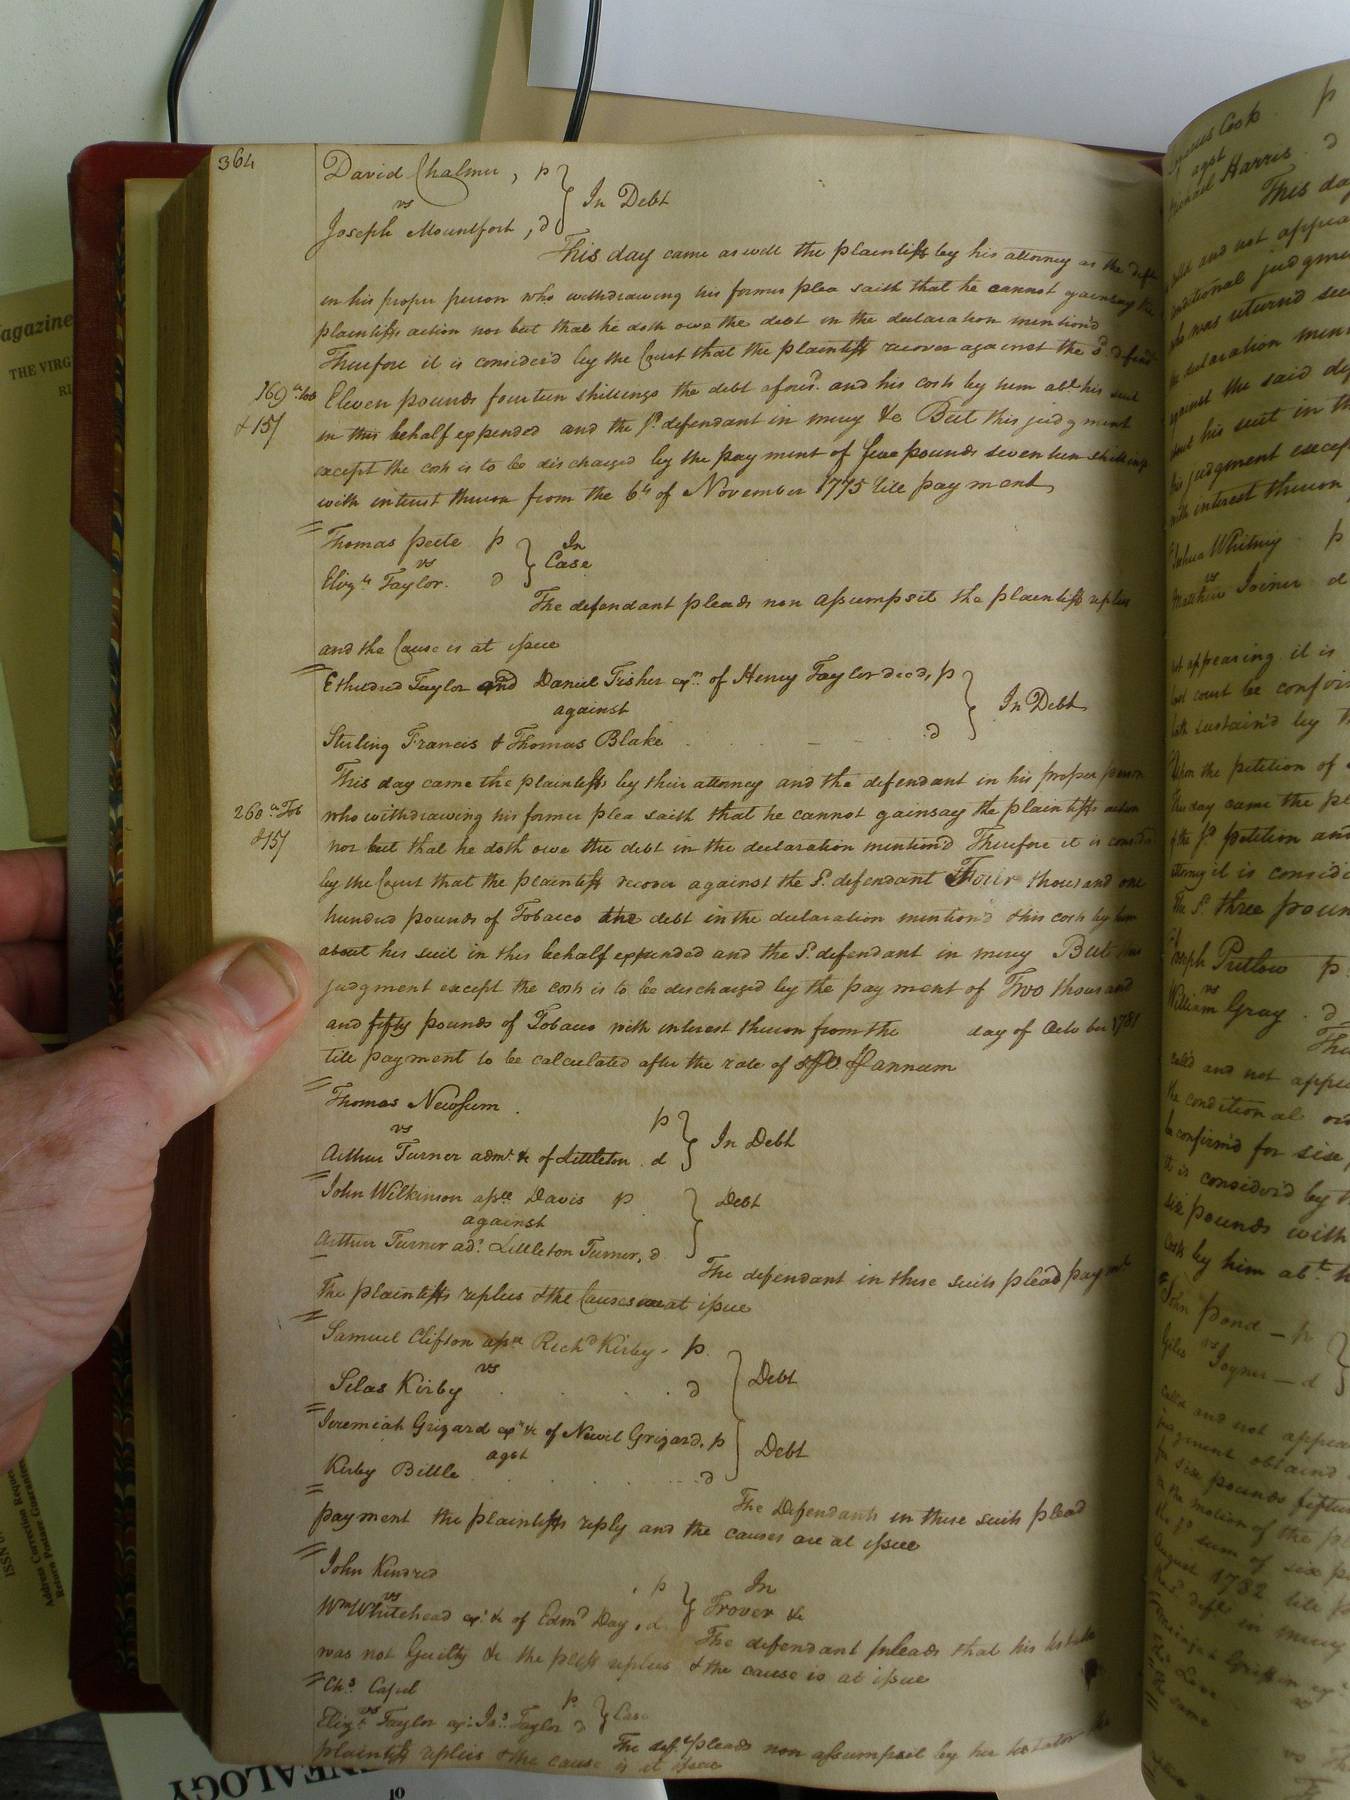 364
David Chalmer, p
vs
Joseph Mountfort, d
In Debt
This day came as well the plaintiff by his attorney as the deft
in his proper person who withdrawing his former plea saith that he cannot gainsay the
plaintiffs action nor but that he doth owe the debt in the declaration mention'd
Therefore it is consider'd by the Court that the plaintiff recover against the sd. defend
169 a Tob
& 15/
Eleven pounds fourteen shillings the debt afores'd. and his costs by him abt. his suit
in this behalf expended and the sd. defendant in mercy &c But this judgment
except the costs is to be discharged by the payment of five pounds seventeen shillings
with interest thereon from the 6th of November 1775 till payment,
Thomas peete p
vs
Eliz.th Taylor. d
In
Case
The defendant pleads non assumpsit the plaintiff replies
and the Cause is at issue
Etheldred Taylor and Daniel Fisher exrs. of Henry Taylor decd, p
against
Sterling Francis & Thomas Blake d
In Debt,
This day came the plaintiffs by their attorney and the defendant in his proper person
260 a Tob
& 15/
who withdrawing his former plea saith that he cannot gainsay the plaintiffs action
nor but that he doth owe the debt in the declaration mention'd Therefore it is consider'd
by the Court that the plaintiff recover against the sd. defendant Four thousand one
hundred pounds of Tobacco the debt in the declaration mention'd & his costs by him
about his suit in this behalf expended and the sd. defendant in mercy But this
judgment except the costs is to be discharged by the payment of Two thousand
and fifty pounds of Tobacco with interest thereon from the day of October 1781
till payment to be calculated after the rate of annum
Thomas Newsum p
vs
Arthur Turner admr. &c of Littleton d
In Debt
John Wilkinson assee Davis p
against
Arthur Turner adr. Littleton Turner, d
Debt
The defendant in these suits plead paymt
The plaintiffs replies & the Causes are at issue
Samuel Clifton assee Rich'd Kirby - p.
vs
Silas Kirby d
Debt
Jeremiah Grizard exr &c of Newil Grizard, p
agst
Kirby Bittle d
Debt
The Defendants in these suits plead
payment the plaintiffs reply and the causes are at issue
John Kindred p
vs
Wm Whitehead exr. &c of Edmd Day, d
In
Trover &c
The defendant pleads that his testator
was not Guilty &c the pltff replies & the cause is at issue
Chs Capel p
vs
Eliz.a Taylor exr. Jas. Taylor d
Case
The deft. pleads non assumpsit by her testator the
plaintiff replies & the cause is at issue
Cook p
agst
Michael Harris. d
This day
call'd and not appea
conditional judgme
who was return'd sec
the declaration men
against the said de
about his suit in th
this judgment excep
with interest thereon
Joshua Whitney p
vs
Matthew Joiner d
not appearing it is
last court be confir
hath sustain'd by t
Upon the petition of
This day came the pl
of the sd. petition and
attorney it is consid
the sd. three poun
Joseph Pretlow p
vs
William Gray. d
The
call'd and not appe
the conditional or
be confirm'd for six
it is consider'd by t
six pounds with
Costs by him abt. h
John Pond - p
vs
Giles Joyner - d
call'd and not appea
judgment obtain'd
for six pounds fiftee
on the motion of the p
the sd sum of six p
August 1782 till p
deft. in mercy
the same
vs
agazine
THE VIRG
RI
ISSN
Address Correction Reques
Return Postage Guarantee
GENEALOGY
of